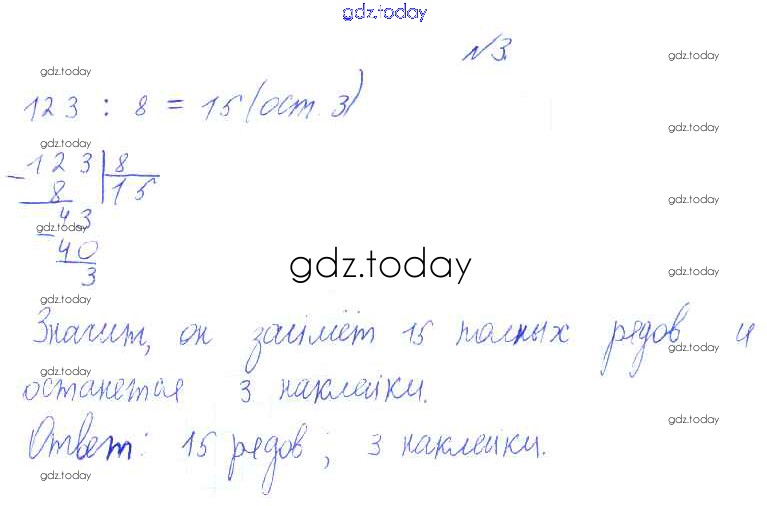 gdz.today
N3.
gdz.today
gdz.today
123 : 8 = 15 (ост. 3)
gdz.today
gdz.today
- 123 | 8
8 | 15
gdz.today
43
gdz.today
-
40
3
gdz.today
gdz.today
gdz.today
Значит, он займёт 15 полных рядов и
gdz.today
останется 3 наклейки.
gdz.today
gdz.today
Ответ: 15 рядов; 3 наклейки.
gdz.today